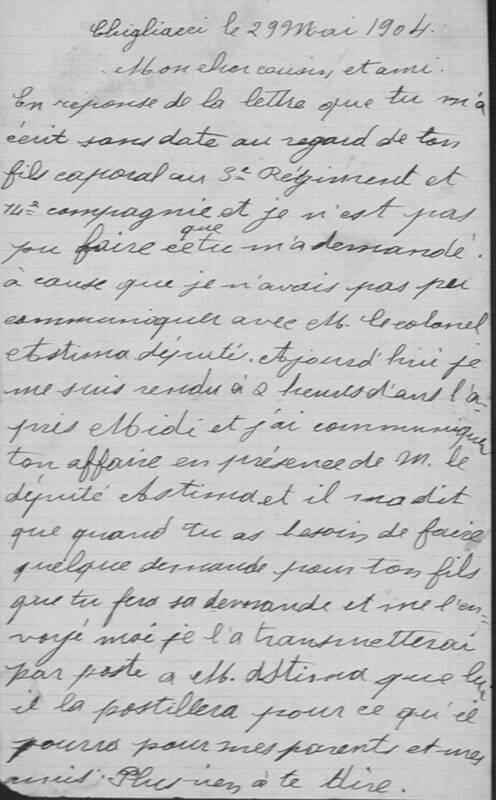 Chigliacci le 29 Mai 1904.
Mon cher cousin et ami.
En réponse de la lettre que tu m'a
écrit sans date au regard de ton
fils caporal au 3e Régiment et
14e compagnie et je n'est pas
pu faire ce que tu m'a demandé.
à cause que je n'avais pas pu
communiquer avec M. le colonel
Astima député. Ajourd'hui je
me suis rendu à 2 heures d'ans l'a-
près Midi et j'ai communiquer
ton affaire en présence de M. le
député Astima et il m'a dit
que quand tu as besoin de faire
quelque demande pour ton fils
que tu fera sa demande et me l'en-
voyé moi je l'a transmetterai
par poste a M. Astima que lui
il la postillera pour ce qu'il
pourra pour mes parents et mes
amis. Plus rien à te dire.